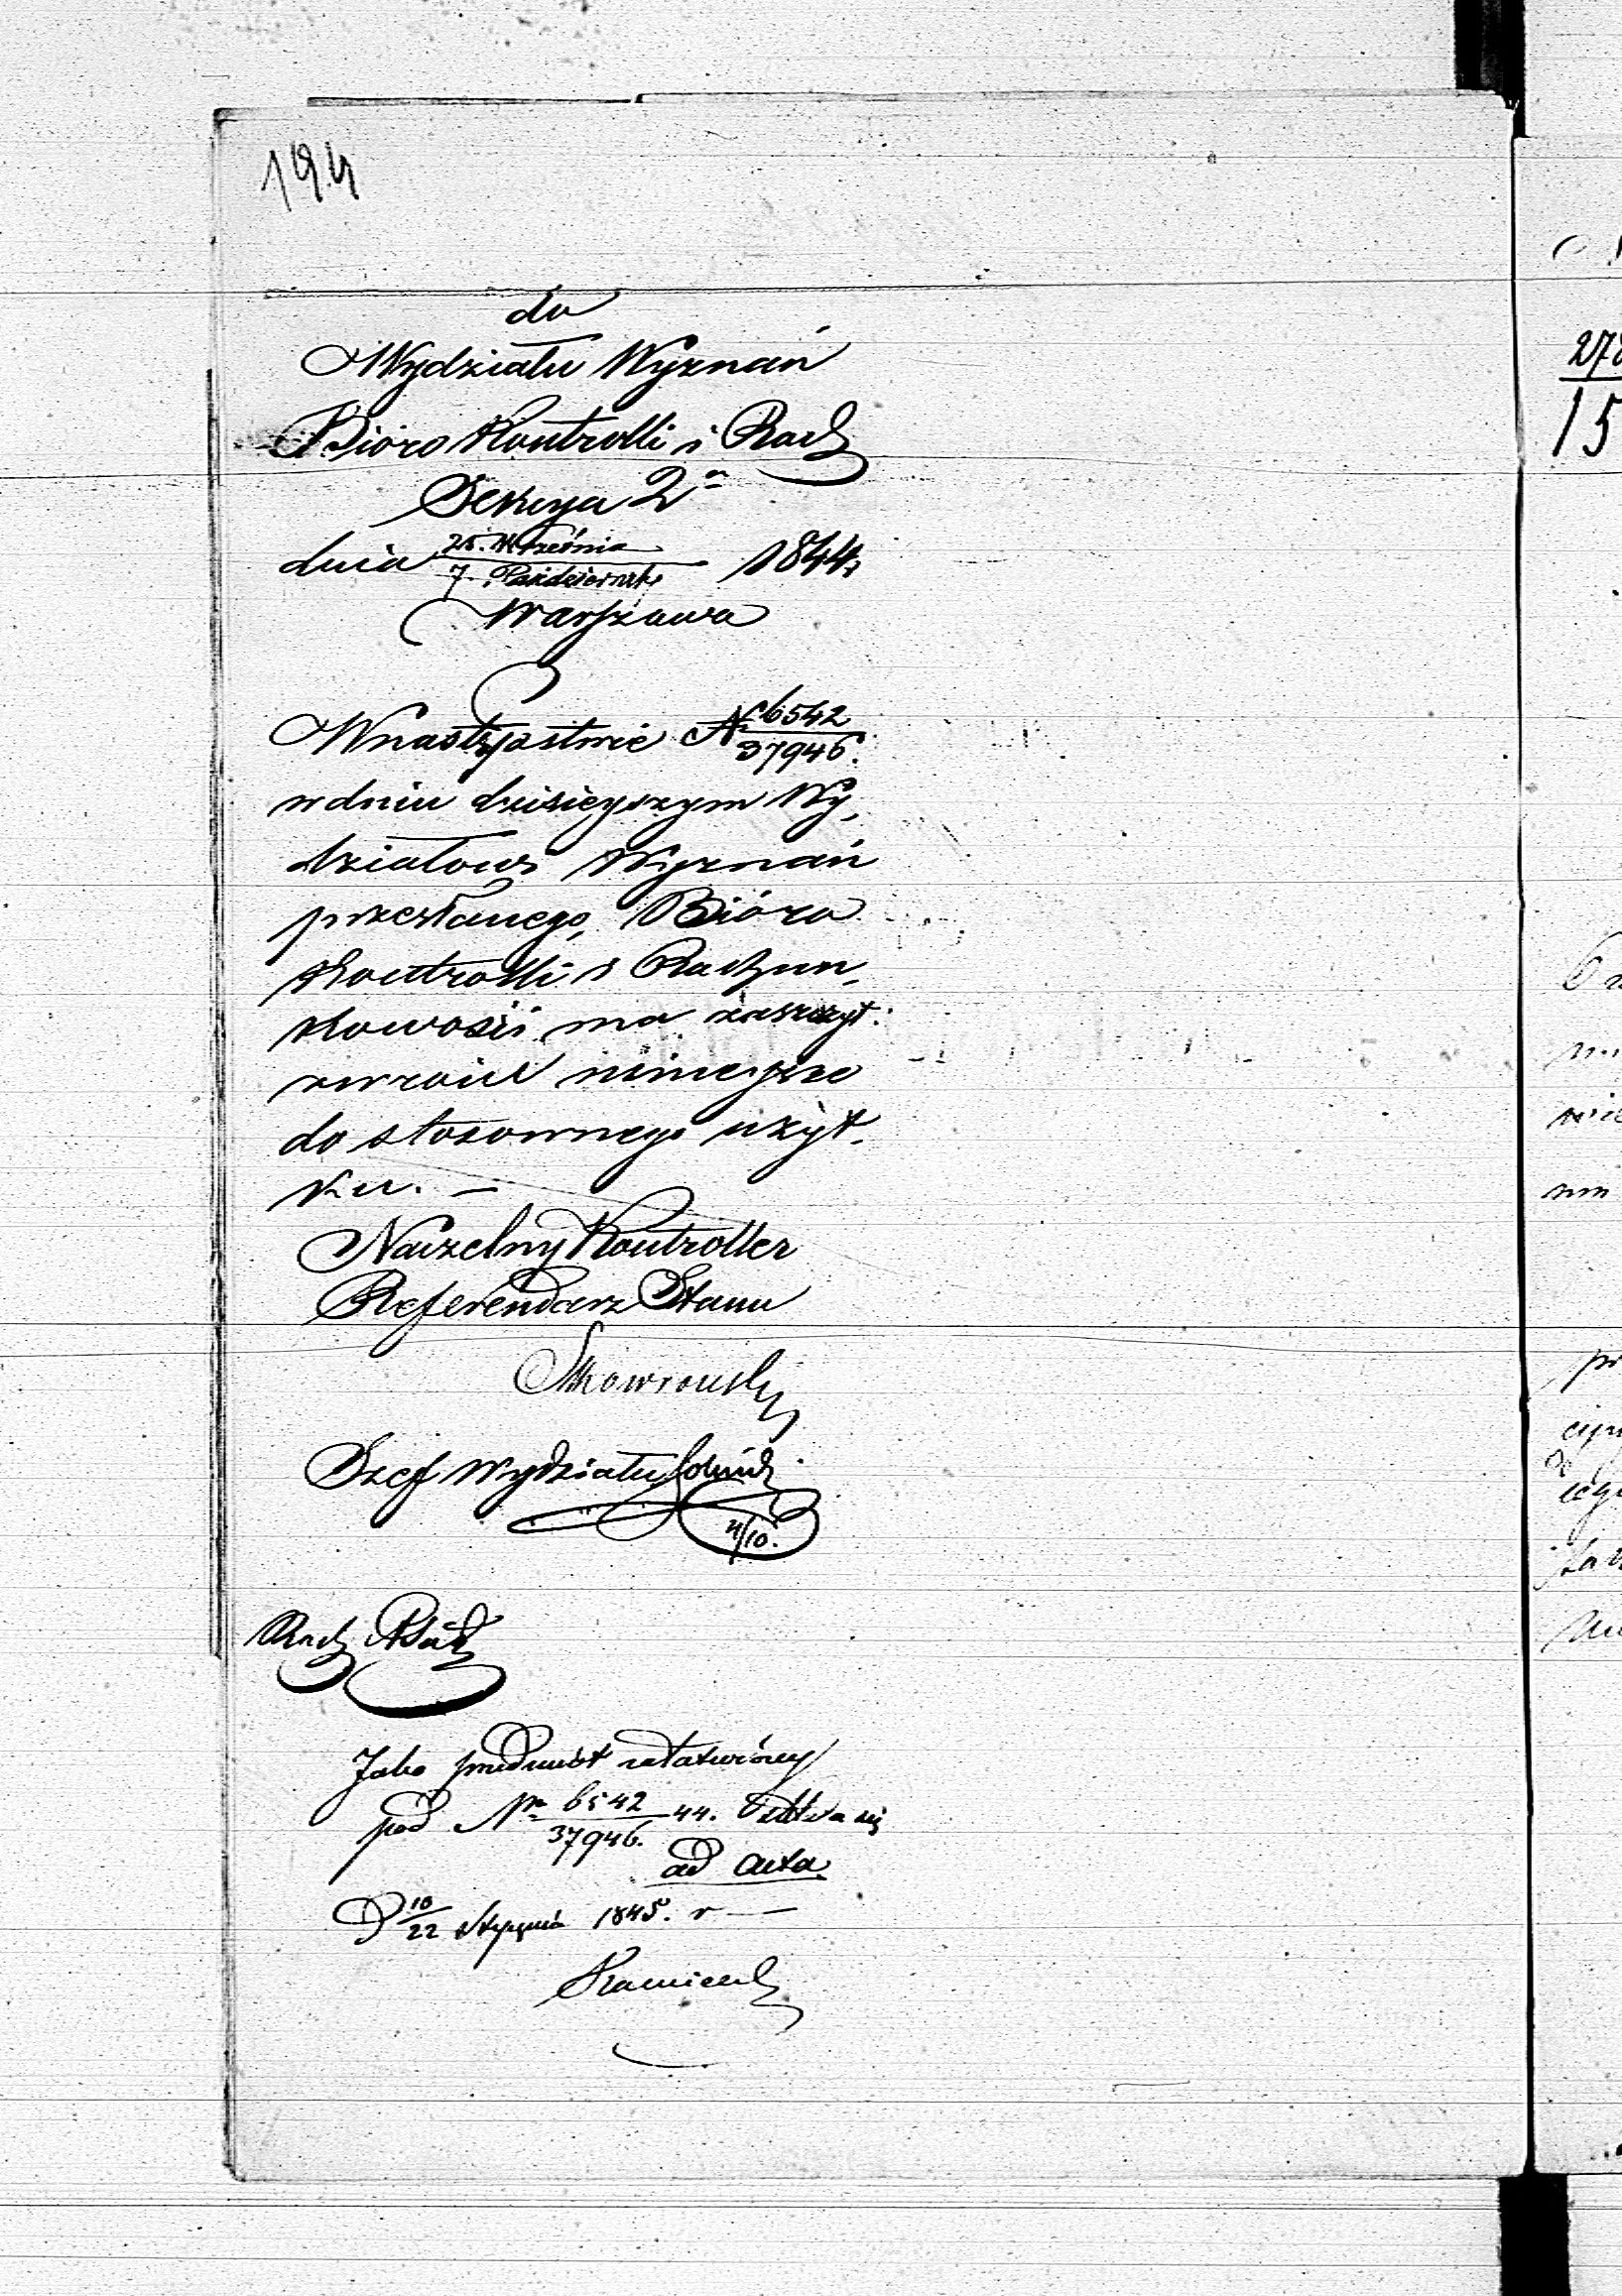 194
do
Wydziału Wyznań
Bióro Kontrolli i Rach
Sekcya 2a
dnia 25. Września / 7. Października 1844.
Warszawa
Wnastępstwie N 6542 / 37946.
w dniu dzisieyszym Wy,
działowi Wyznań
przesłanego, Bióro
Kontrolli i Rachun,
kowości ma zaszczyt
zwrócić ninieysze
do stosownego użyt,
ku. —
Naczelny Kontroller
Referendarz Stanu
Skowroński
Szef Wydziału
4/10.
Rach
Jako przedmiot załatwiony
pod Nr 6542 / 37946. 44. składa się
ad acta
D 10/22 Stycznia 1845. r —
278
15